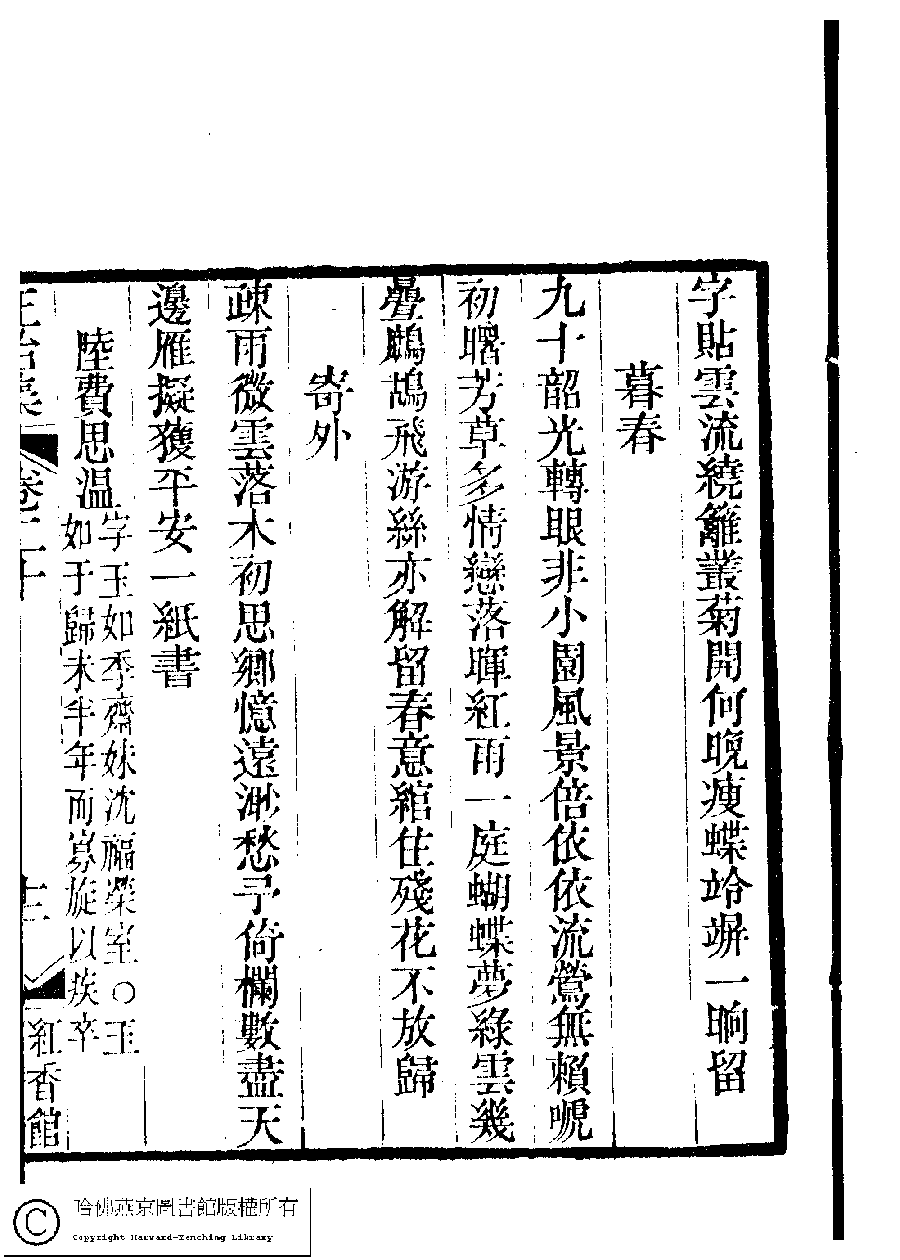 字貼雲流繞籬叢菊開何晚瘦蝶竛竮一晌留
暮春
九十韶光轉眼非小園風景倍依依流鶯無賴唬
初曙芳草多情戀落暉紅雨一庭蝴蝶夢綠雲幾
疊鷓鴣飛游絲亦解留春意綰住殘花不放歸
寄外
疎雨微雲落木初思鄉憶遠渺愁予倚欄數盡天
邊雁擬獲平安一紙書
陸費思温
字玉如季齋妹沈福榮室○玉
如于歸未半年而寡旋以疾卒
正始集
卷二十
紅香館
哈佛燕京圖書館版權所有
Copyright Harvard-Yenching Library